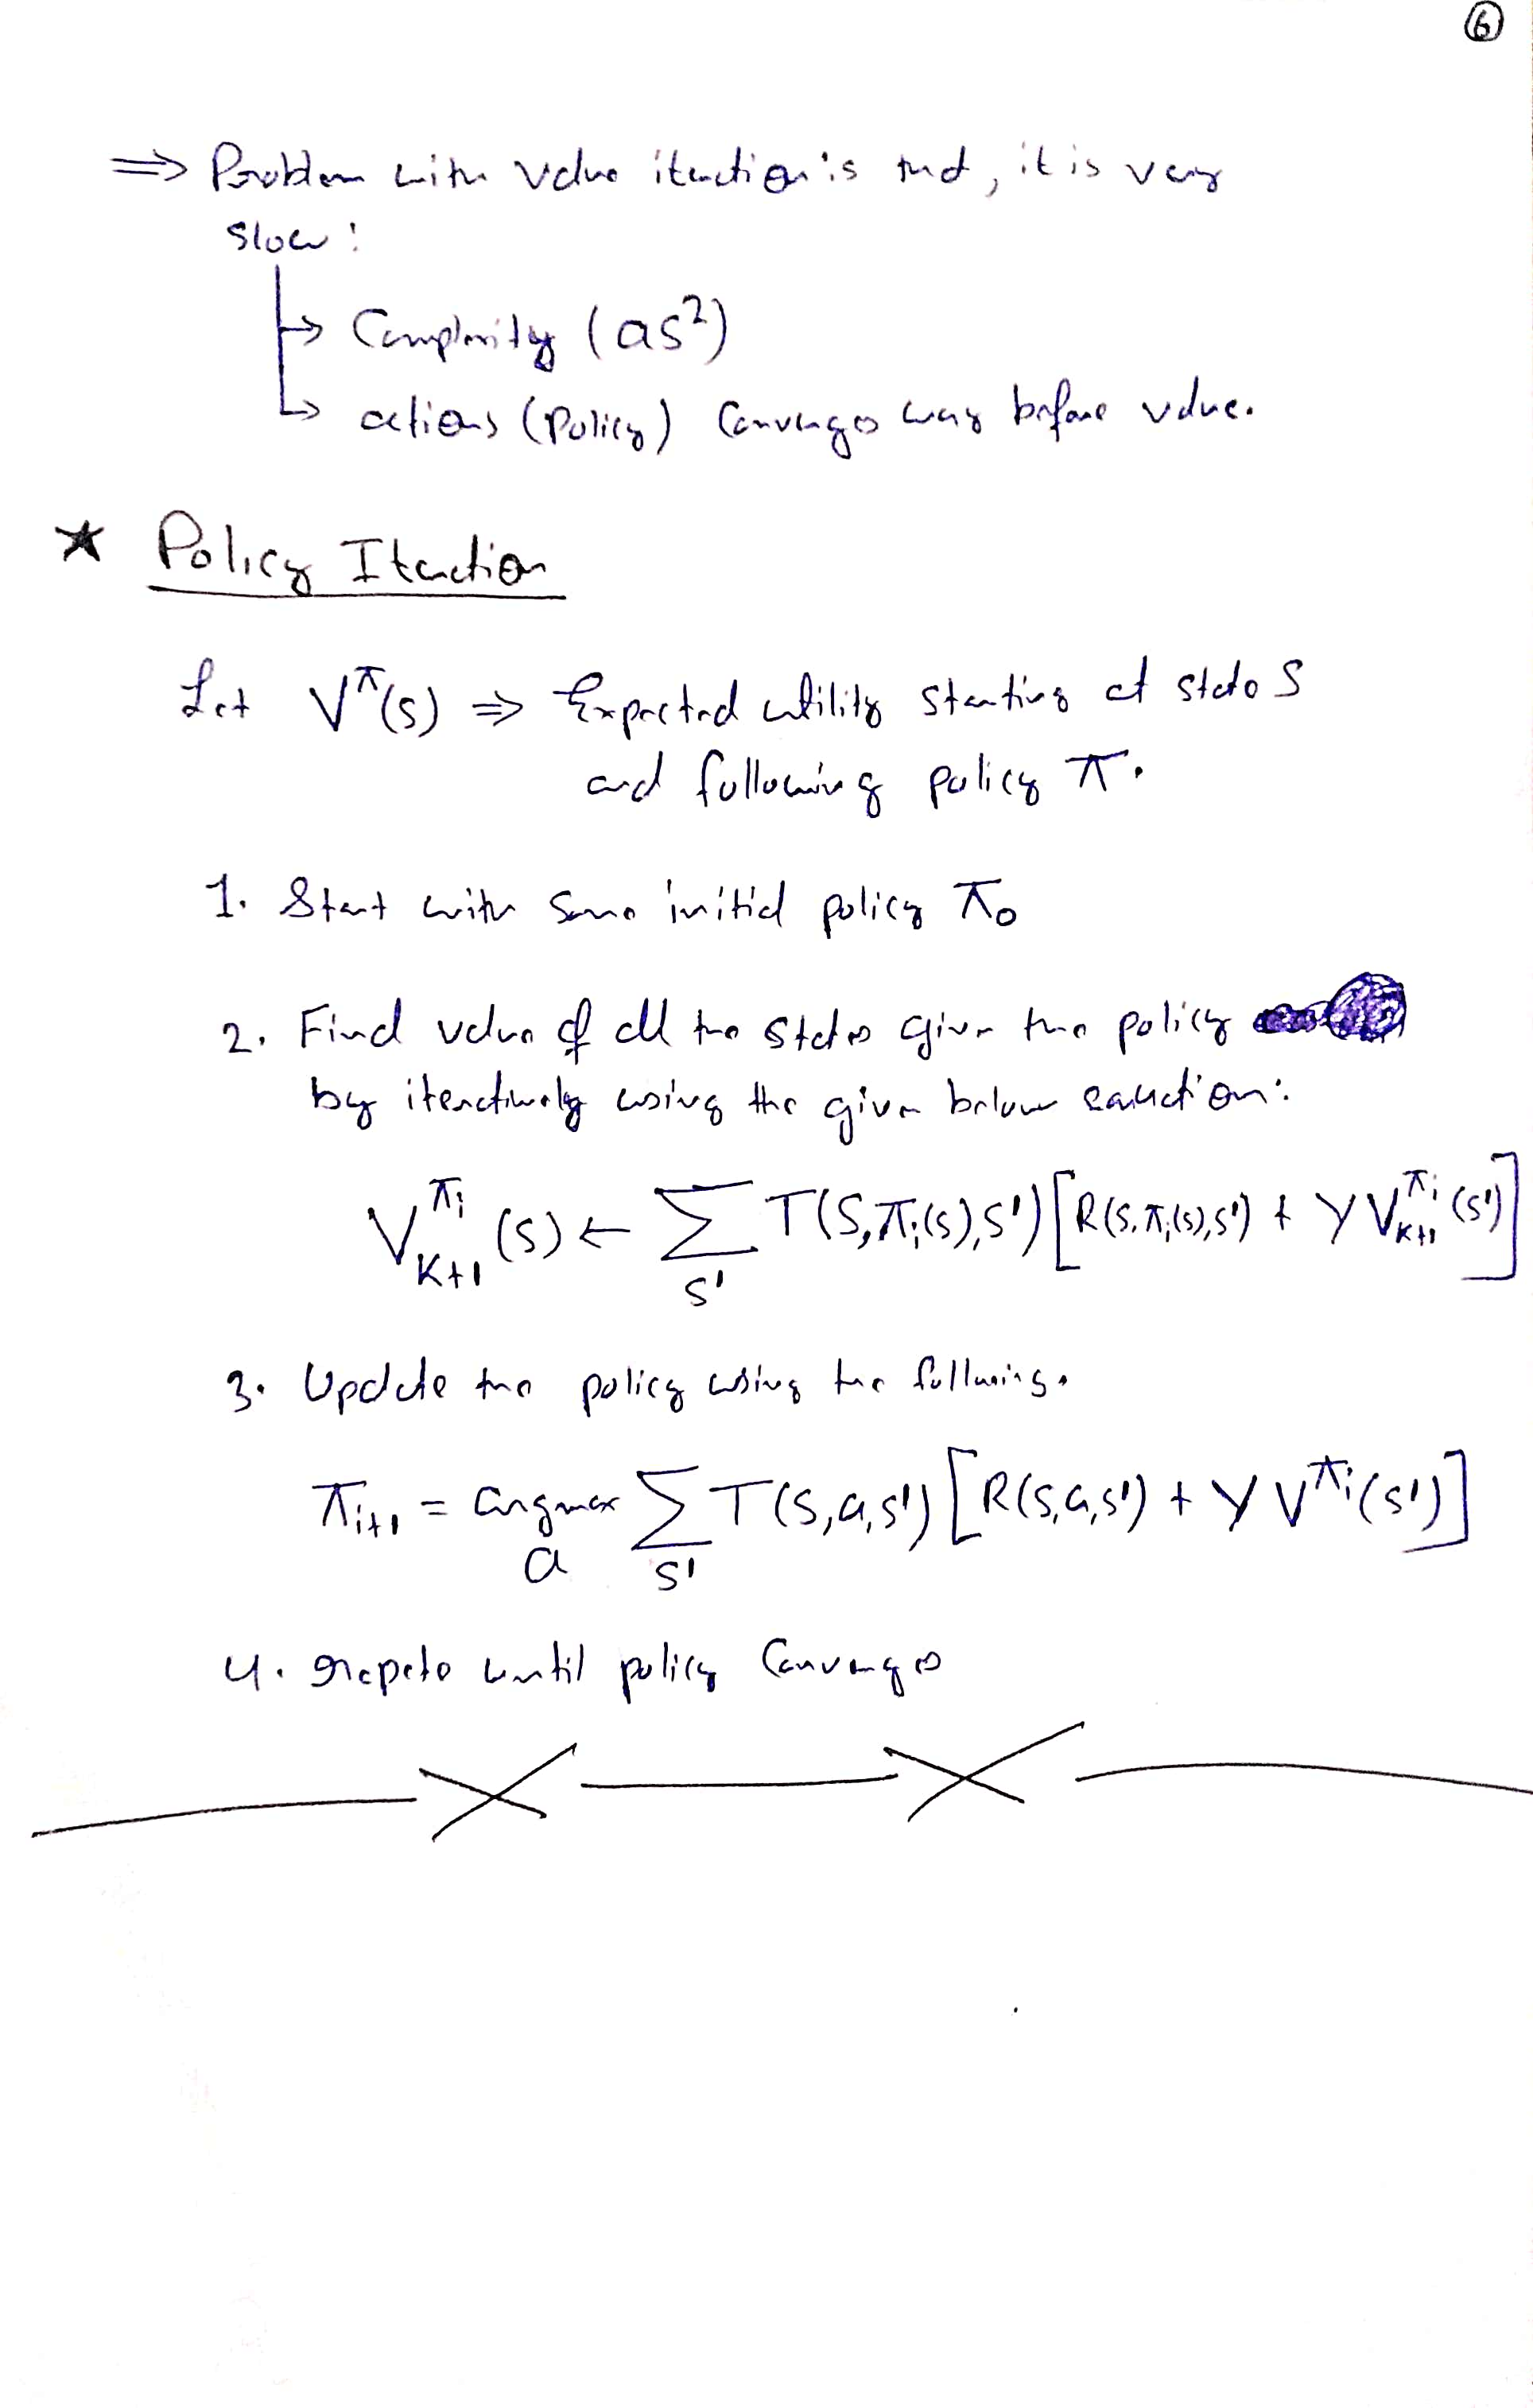 ⑥
⇒ Problem with value iteration is that, it is very
slow:
↳ Complexity (as²)
↳ actions (Policy) Converges way before value.
★ Policy Iteration
Let V^π(s) ⇒ Expected utility starting at state S
and following policy π.
1. Start with some initial policy π₀
2. Find value of all the states given the policy
by iteratively using the given below equation:
V^{π_i}_{K+1}(s) ← Σ_{s'} T(S, π_i(s), s') [R(s, π_i(s), s') + γ V^{π_i}_{K+1}(s')]
3. Update the policy using the following.
π_{i+1} = argmax_a Σ_{s'} T(s, a, s') [R(s, a, s') + γ V^{π_i}(s')]
4. repeto until policy Converges